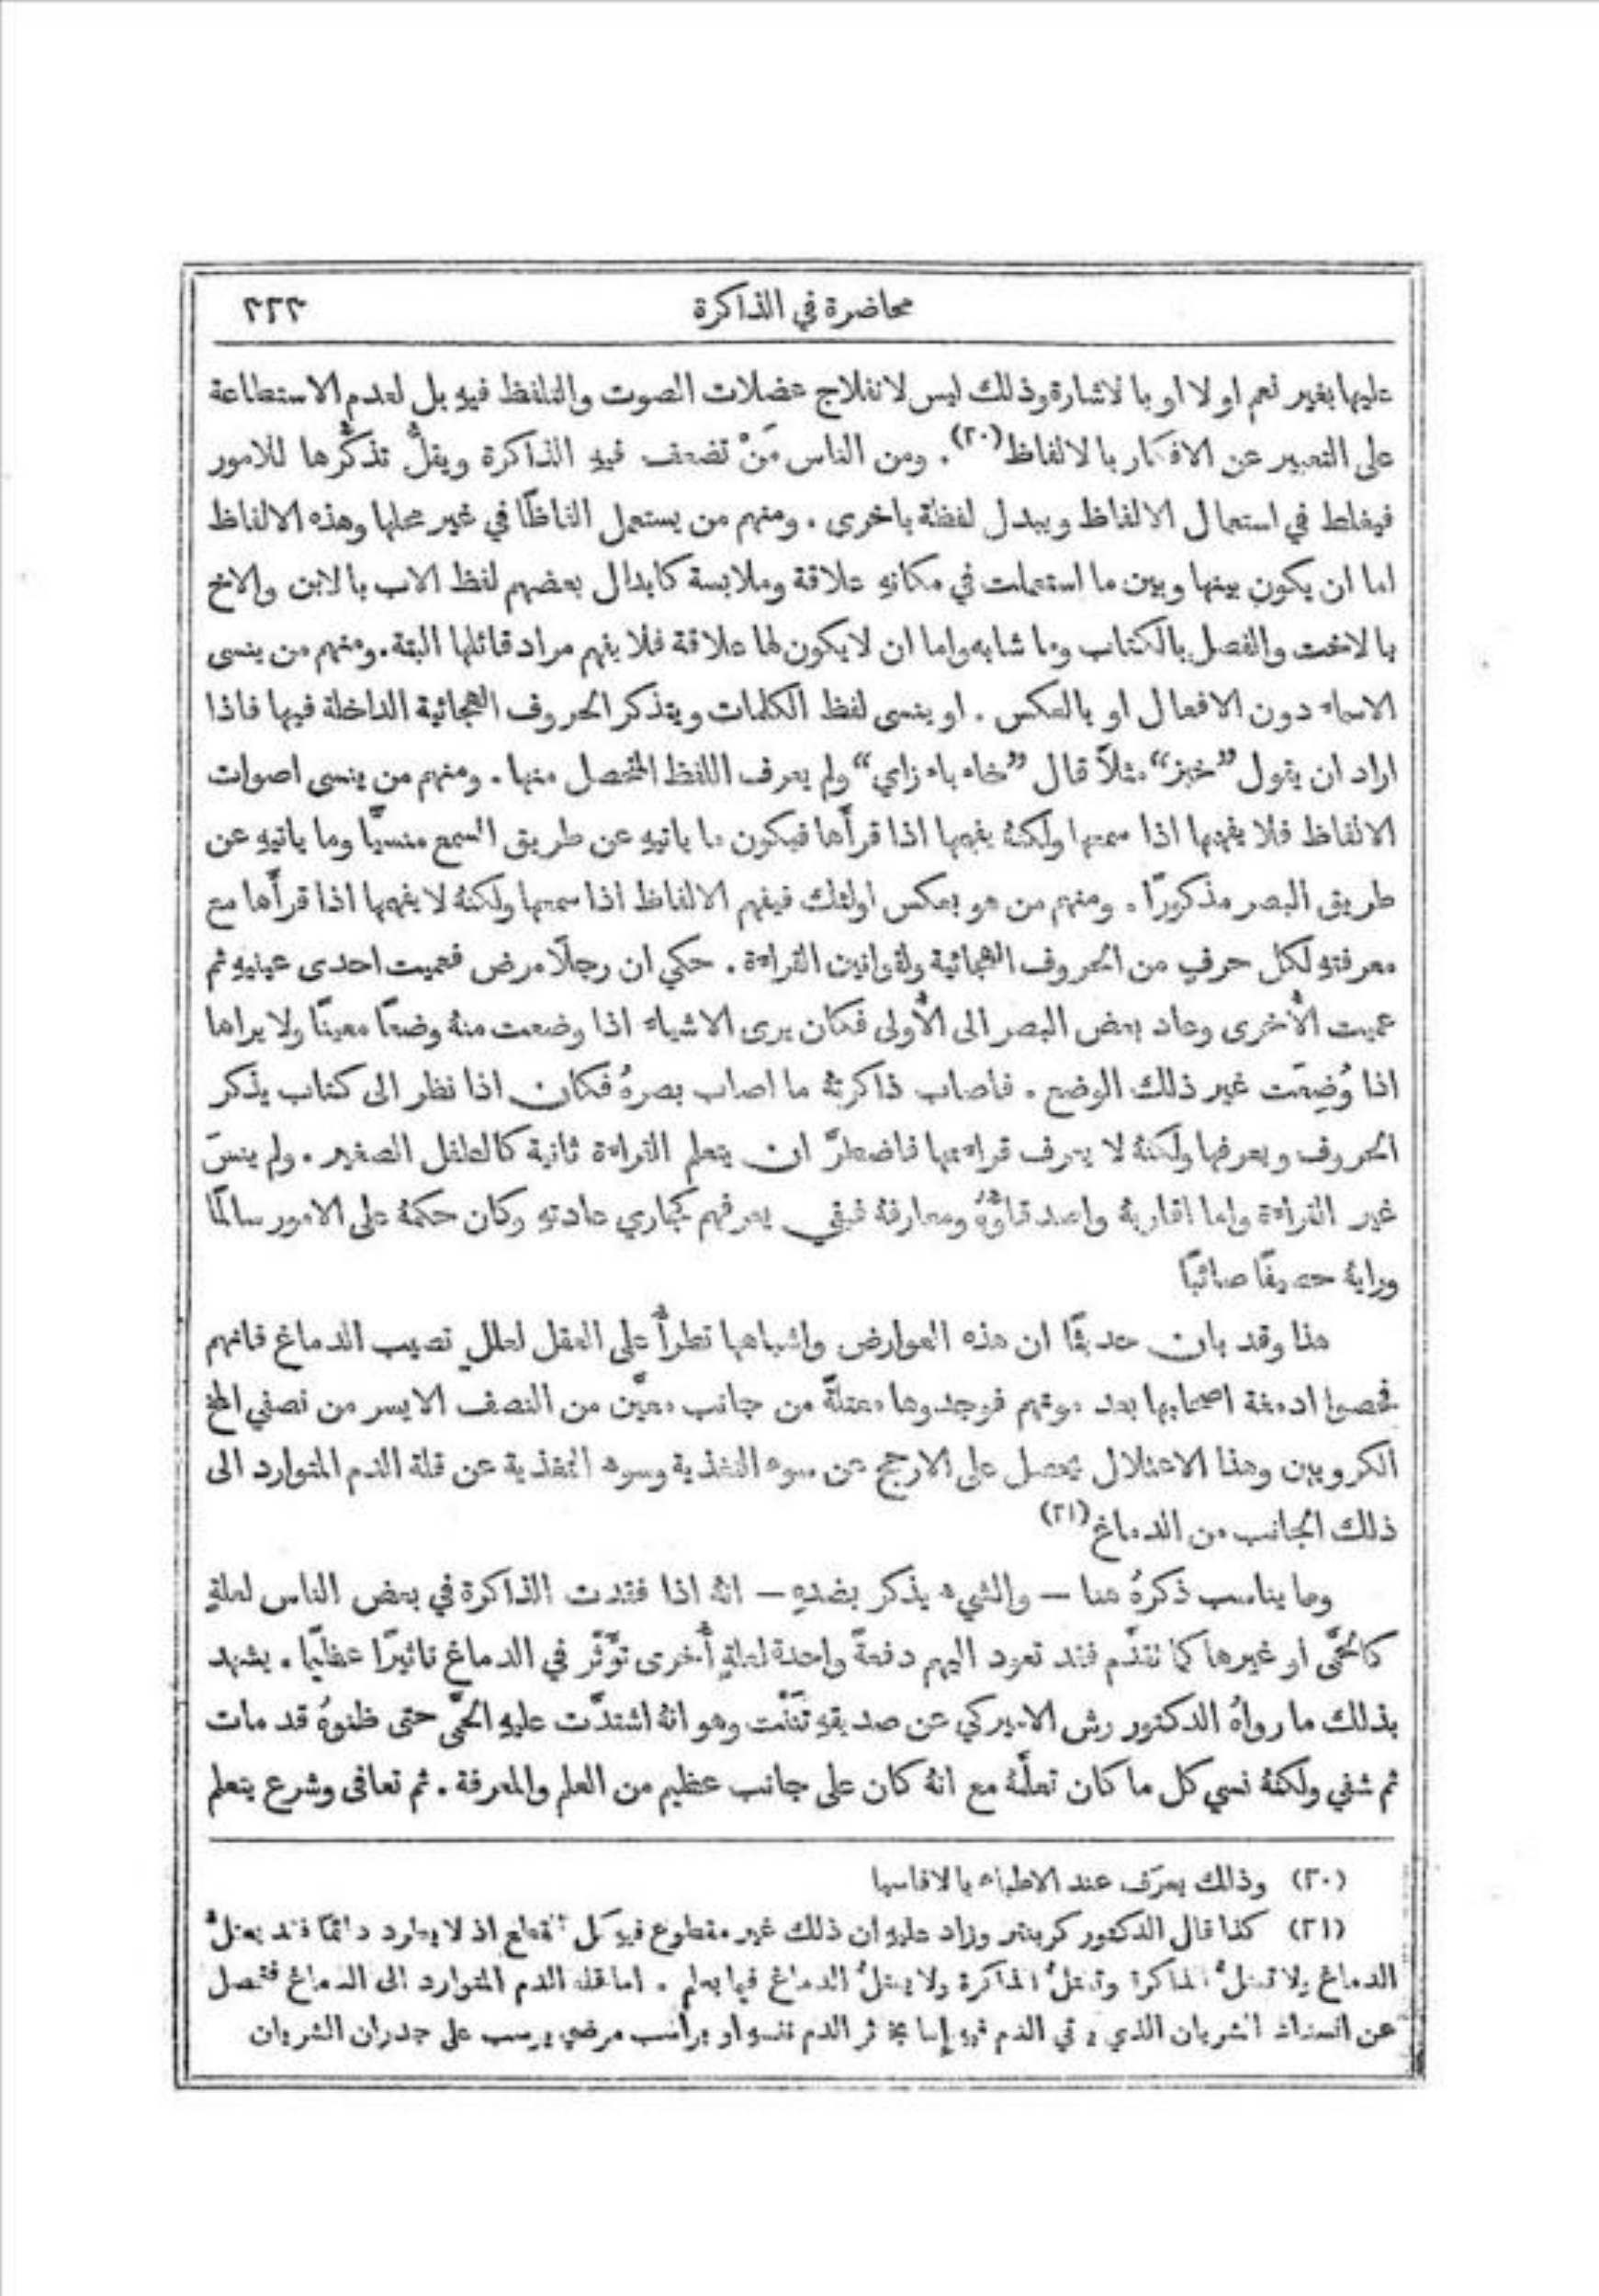 محاضرة في الذاكرة ٢٢٣
عليها بغير نعم او لا او بالاشارة وذلك ليس لانفلاج عضلات الصوت والتلفظ فيهِ بل لعدم الاستطاعة
على التعبير عن الافكار بالالفاظ(٢٠). ومن الناس مَنْ تضعف فيهِ الذاكرة ويقلُّ تذكُّرها للامور
فيغلط في استعمال الالفاظ ويبدل لفظة باخرى . ومنهم من يستعمل الفاظًا في غير محلها وهذه الالفاظ
اما ان يكون بينها وبين ما استعملت في مكانهِ علاقة وملابسة كابدال بعضهم لفظ الاب بالابن والاخ
بالاخت والفصل بالكتاب وما شابه واما ان لا يكون لها علاقة فلا يفهم مراد قائلها البتة. ومنهم من ينسى
الاسماء دون الافعال او بالعكس . او ينسى لفظ الكلمات ويتذكر الحروف الهجائية الداخلة فيها فاذا
اراد ان يقول ”خبز“ مثلاً قال ”خاء باء زاي“ ولم يعرف اللفظ المتحصل منها . ومنهم من ينسى اصوات
الالفاظ فلا يفهمها اذا سمعها ولكنهُ يفهمها اذا قرأَها فيكون ما ياتيهِ عن طريق السمع منسيًّا وما ياتيهِ عن
طريق البصر مذكورًا . ومنهم من هو بعكس اولئك فيفهم الالفاظ اذا سمعها ولكنهُ لا يفهمها اذا قرأَها مع
معرفتهِ لكل حرفٍ من الحروف الهجائية ولقوانين القراءة . حكي ان رجلًا مرض فعميت احدى عينيهِ ثم
عميت الأُخرى وعاد بعض البصر الى الأُولى فكان يرى الاشياء اذا وضعت منهُ وضعًا معينًا ولا يراها
اذا وُضِعَت غير ذلك الوضع . فاصاب ذاكرتهُ ما اصاب بصرهُ فكان اذا نظر الى كتاب يذكر
الحروف ويعرفها ولكنهُ لا يعرف قراءتها فاضطرَّ ان يتعلم القراءة ثانية كالطفل الصغير . ولم ينسَ
غير القراءة واما اقاربهُ واصدقاؤُهُ ومعارفهُ فبقي يعرفهم كجاري عادتهِ وكان حكمهُ على الامور سالمًا
ورايهُ حصيفًا صائبًا
هذا وقد بان حديثًا ان هذه العوارض واشباهها تطرأُ على العقل لعللٍ تصيب الدماغ فانهم
فحصوا ادمغة اصحابها بعد موتهم فوجدوها معتلَّة من جانب معيَّن من النصف الايسر من نصفي المخ
الكرويين وهذا الاعتلال يحصل على الارجح عن سوء التغذية وسوء التغذية عن قلة الدم المتوارد الى
ذلك الجانب من الدماغ(٢١)
ومما يناسب ذكرهُ هنا — والشيء يذكر بضدهِ — انهُ اذا فقدت الذاكرة في بعض الناس لعلةٍ
كالحُمَّى او غيرها كما تقدَّم فقد تعود اليهم دفعةً واحدة لعلةٍ أُخرى تؤَثّر في الدماغ تاثيرًا عظيمًا . يشهد
بذلك ما رواهُ الدكتور رش الاميركي عن صديقهِ تَنَنْت وهو انهُ اشتدَّت عليهِ الحمَّى حتى ظنوهُ قد مات
ثم شفي ولكنهُ نسي كل ما كان تعلَّمهُ مع انهُ كان على جانب عظيم من العلم والمعرفة . ثم تعافى وشرع يتعلم
(٢٠) وذلك يعرَف عند الاطباء بالافاسيا
(٢١) كذا قال الدكتور كربنتر وزاد عليهِ ان ذلك غير مقطوع فيهِ كل القطع اذ لا يطرد دائمًا فقد يعتلُّ
الدماغ ولا تعتلُّ الذاكرة وتعتلُّ الذاكرة ولا يعتلُّ الدماغ فيما يعلم . اما قلة الدم المتوارد الى الدماغ فتحصل
عن انسداد الشريان الذي ياتي الدم فيهِ إما بتخثر الدم نفسهِ او براسب مرضي يرسب على جدران الشريان